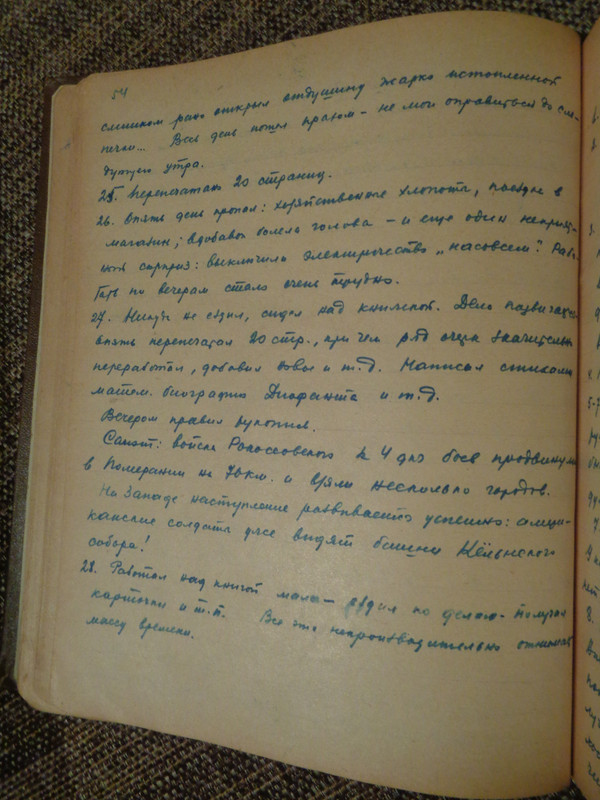 54
слишком рано открыл отдушину жарко истопленной
печки... Весь день пошел прахом - не мог оправиться до сле-
дующего утра.
25. Перепечатал 20 страниц.
26. Опять день пропал: хозяйственные хлопоты, поездка в
магазин; вдобавок болела голова - и еще один неприят-
ный сюрприз: выключили электричество „насовсем". Рабо-
тать по вечерам стало очень трудно.
27. Никуда не ездил, сидел над книжкой. Дело подвигается:
опять перепечатал 20 стр., при чем ряд очерк. значительно
переработал, добавил новые и т.д. Написал стихами
матем. биографию Диофанта и т.д.
Вечером правил рукопись.
Салют: войска Рокоссовского за 4 дня боев продвинулись
в Померании на 70 км. и взяли несколько городов.
На Западе наступление развивается успешно: амери-
канские солдаты уже видят башни Кёльнского
собора!
28. Работал над книгой мало - ездил по делам - получал
карточки и т.п. Все это непроизводительно отнимает
массу времени.